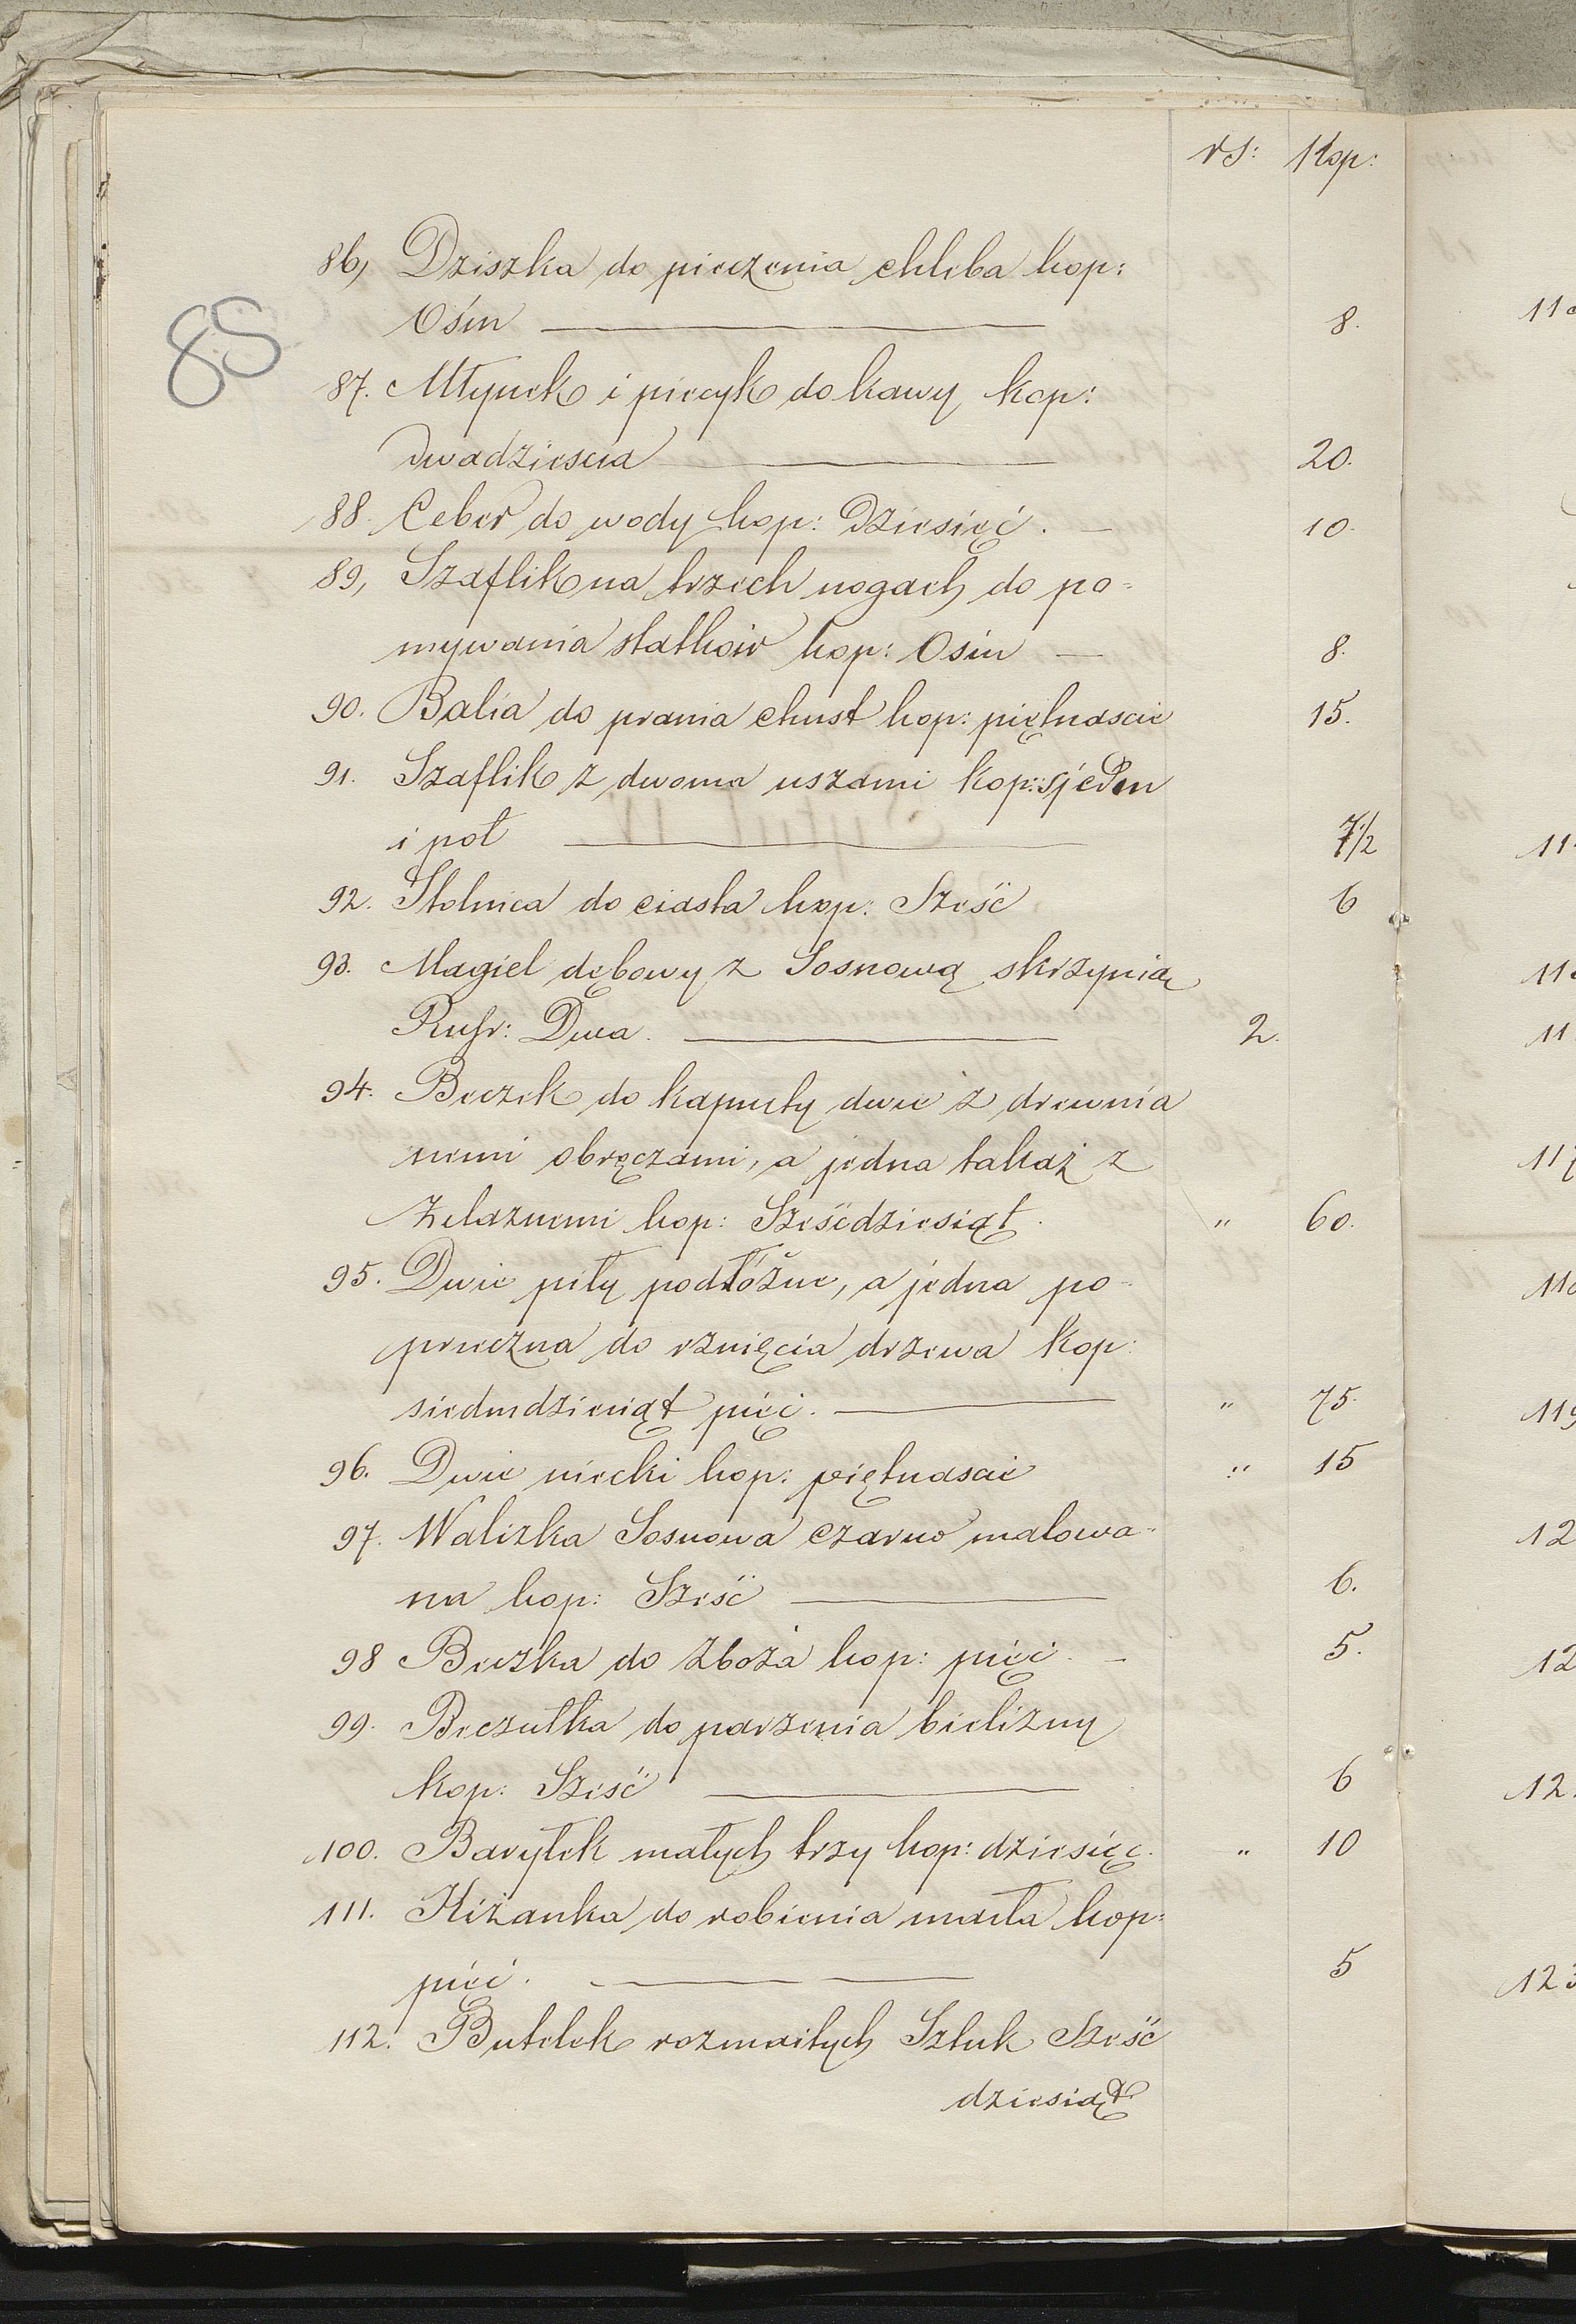 rs: Kop:
86, Dziszka do pieczenia chleba kop:
Ośm 8.
85
87. Młynek i piecyk do kawy kop:
dwadziescia 20.
88. Ceber do wody kop: Dziesięć. 10.
89, Szaflik na trzech nogach do po-
mywania statków kop: Ośm 8.
90. Balia do prania chust kop: piętnascie 15.
91. Szaflik z dwoma uszami kop: sjedm
i poł 7 1/2
92. Stolnica do ciasta kop: Sześć 6
93. Magiel dębowy z Sosnową skrzynią
Rusr: Dwa. 2.
94. Beczek do kapusty dwie z drewnia
nemi obręczami, a jedna takaż z
Żelaznemi kop: Sześćdziesiąt. " 60.
95. Dwie piły podłóżne, a jedna po-
przeczna do rznięcia drzewa kop:
siedmdziesiąt pięć. " 75.
96. Dwie niecki kop: piętnascie " 15
97. Walizka Sosnowa czarno malowa-
na kop: Sześć 6.
98 Beczka do zboża kop: pięć. 5.
99. Beczułka do parzenia bielizny
kop: Sześć 6
100. Baryłek małych trzy kop: dziesięć. " 10
111. Kiżanka do robienia masła kop:
pięć. 5
112. Butelek rozmaitych Sztuk Sześć
dziesiąt